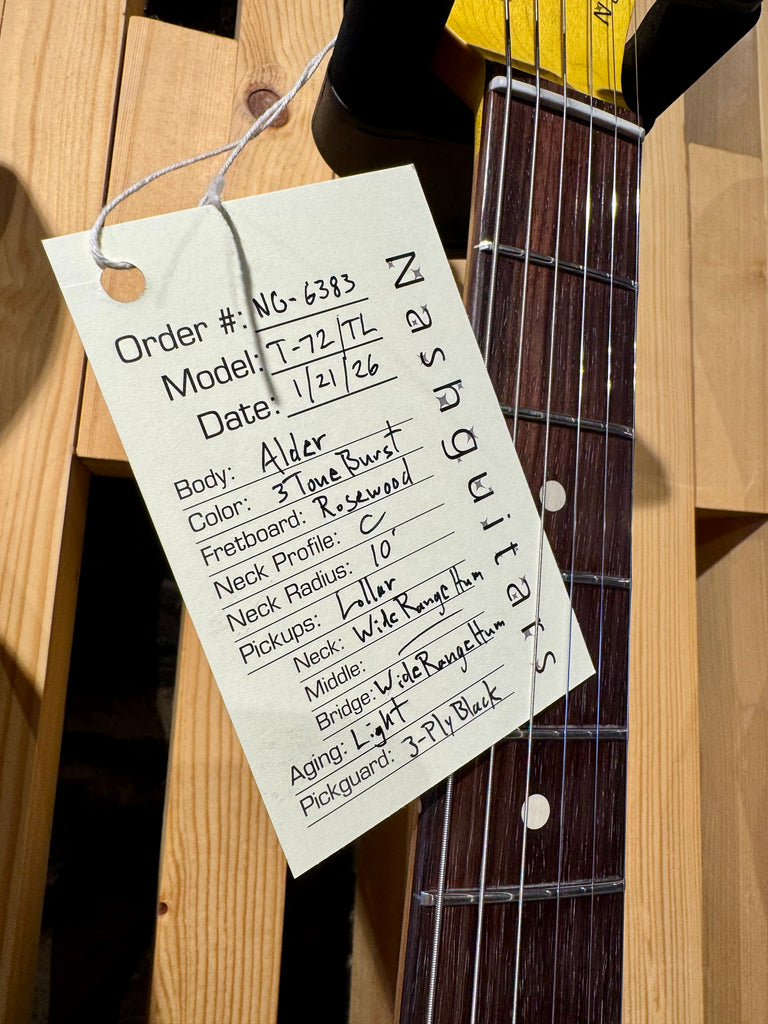 Order #: NG-6383
Model: T-72/TL
Date: 1/21/26
Body: Alder
Color: 3 Tone Burst
Fretboard: Rosewood
Neck Profile: C
Neck Radius: 10'
Pickups: Lollar
Neck: Wide Range Hum
Middle: —
Bridge: Wide Range Hum
Aging: Light
Pickguard: 3-Ply Black
Nashguitars